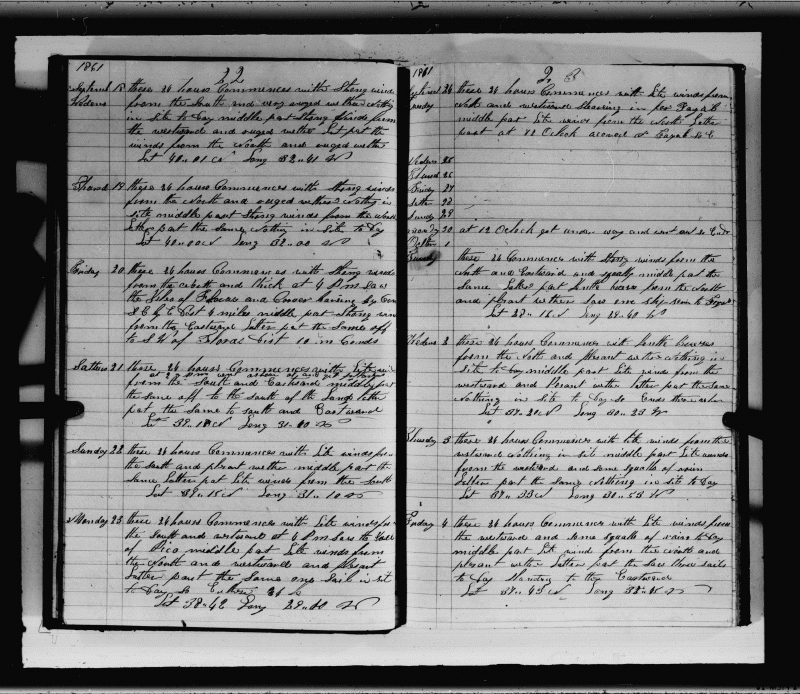 1861
22
Septembr 18 these 24 hours Commences withe Strong winds
Wedens from the South and very ruged wether Nothing
in Site to Day middle part Strong winds from
the westward and ruged wether Lat prt the
winds from the North and ruged wether
Lat 40 - 01 N Long 32 - 41 W
Thursd 19 these 24 hours Commences with Strong winds
from the North and ruged wether Nothing in
site middle part Strong winds from the
Latter part the Same nothing in Site to Day
Lat 40 - 00 N Long 32 - 00 W
Friday 20 these 24 hours Commences with Strong winds
from the North and thick at 4 P m Saw
the Isles of Flores and Corvo baring by Com
4 miles middle part Strong win
from the Eastward latter part the Same off
to S W of Floras Dist 10 m Ends
Satturs 21 these 24 hours Commences with Lite win
from the South and Eastward middle part
the Same off to the South of the Land latter
part the Same to South and Eastward
Lat 39 - 18 N Long 31 - 00 W
Sunday 22 these 24 hours Commences with Lite winds from
the South and plesant wether middle part the
Same latter part Lite winds from the South
Lat 39 - 15 N Long 31 - 10 W
Monday 23 these 24 hours Commences with Lite winds from
the South and westward at 6 P m Saw the Isle
of Pico middle part Lite winds from
the North and westward and plesant
Latter part the Same one Sail in sit
to Day So Enthes 24 h
Lat 38 - 42 Long 29 - 40 W
1861
23
24 these 24 hours Commences with Lite winds from
North and westward Stearing in for Fayal
middle part Lite winds from the North Latter
part at 11 Oclock ancord at Fayal
Wedns 25
Thursd 26
Friday 27
Satter 28
Sunday 29
Monday 30 at 12 Oclock got under way and went out So Ends
1
Tuesday these 24 Commences with Strong winds from the
north and Eastward and squaly middle part the
Same Latter part from the North
and plesant wether saw one Ship
Lat 38 - 16 N Long 29 - 40 W
Wedens 2 these 24 hours Commences with
from the North and plesant wether nothing in
Site to Day middle part Lite winds from the
westward and plesant wether latter part the Same
Nothing in Site to Day So Ends these
Lat 37 - 20 N Long 30 - 23 W
Thursday 3 these 24 hours Commences with Lite winds from the
westward nothing in site middle part Lite winds
from the westward and some squalls of rain
Latter part the Same nothing in site to Day
Lat 37 - 33 N Long 30 - 53 W
Friday 4 these 24 hours Commences with Lite winds from
the westward and some squalls of rain to Day
middle part Lite wind from the North and
plesant wether Latter part the Same three sails
to Day Standing to the Eastward
Long 32 - W